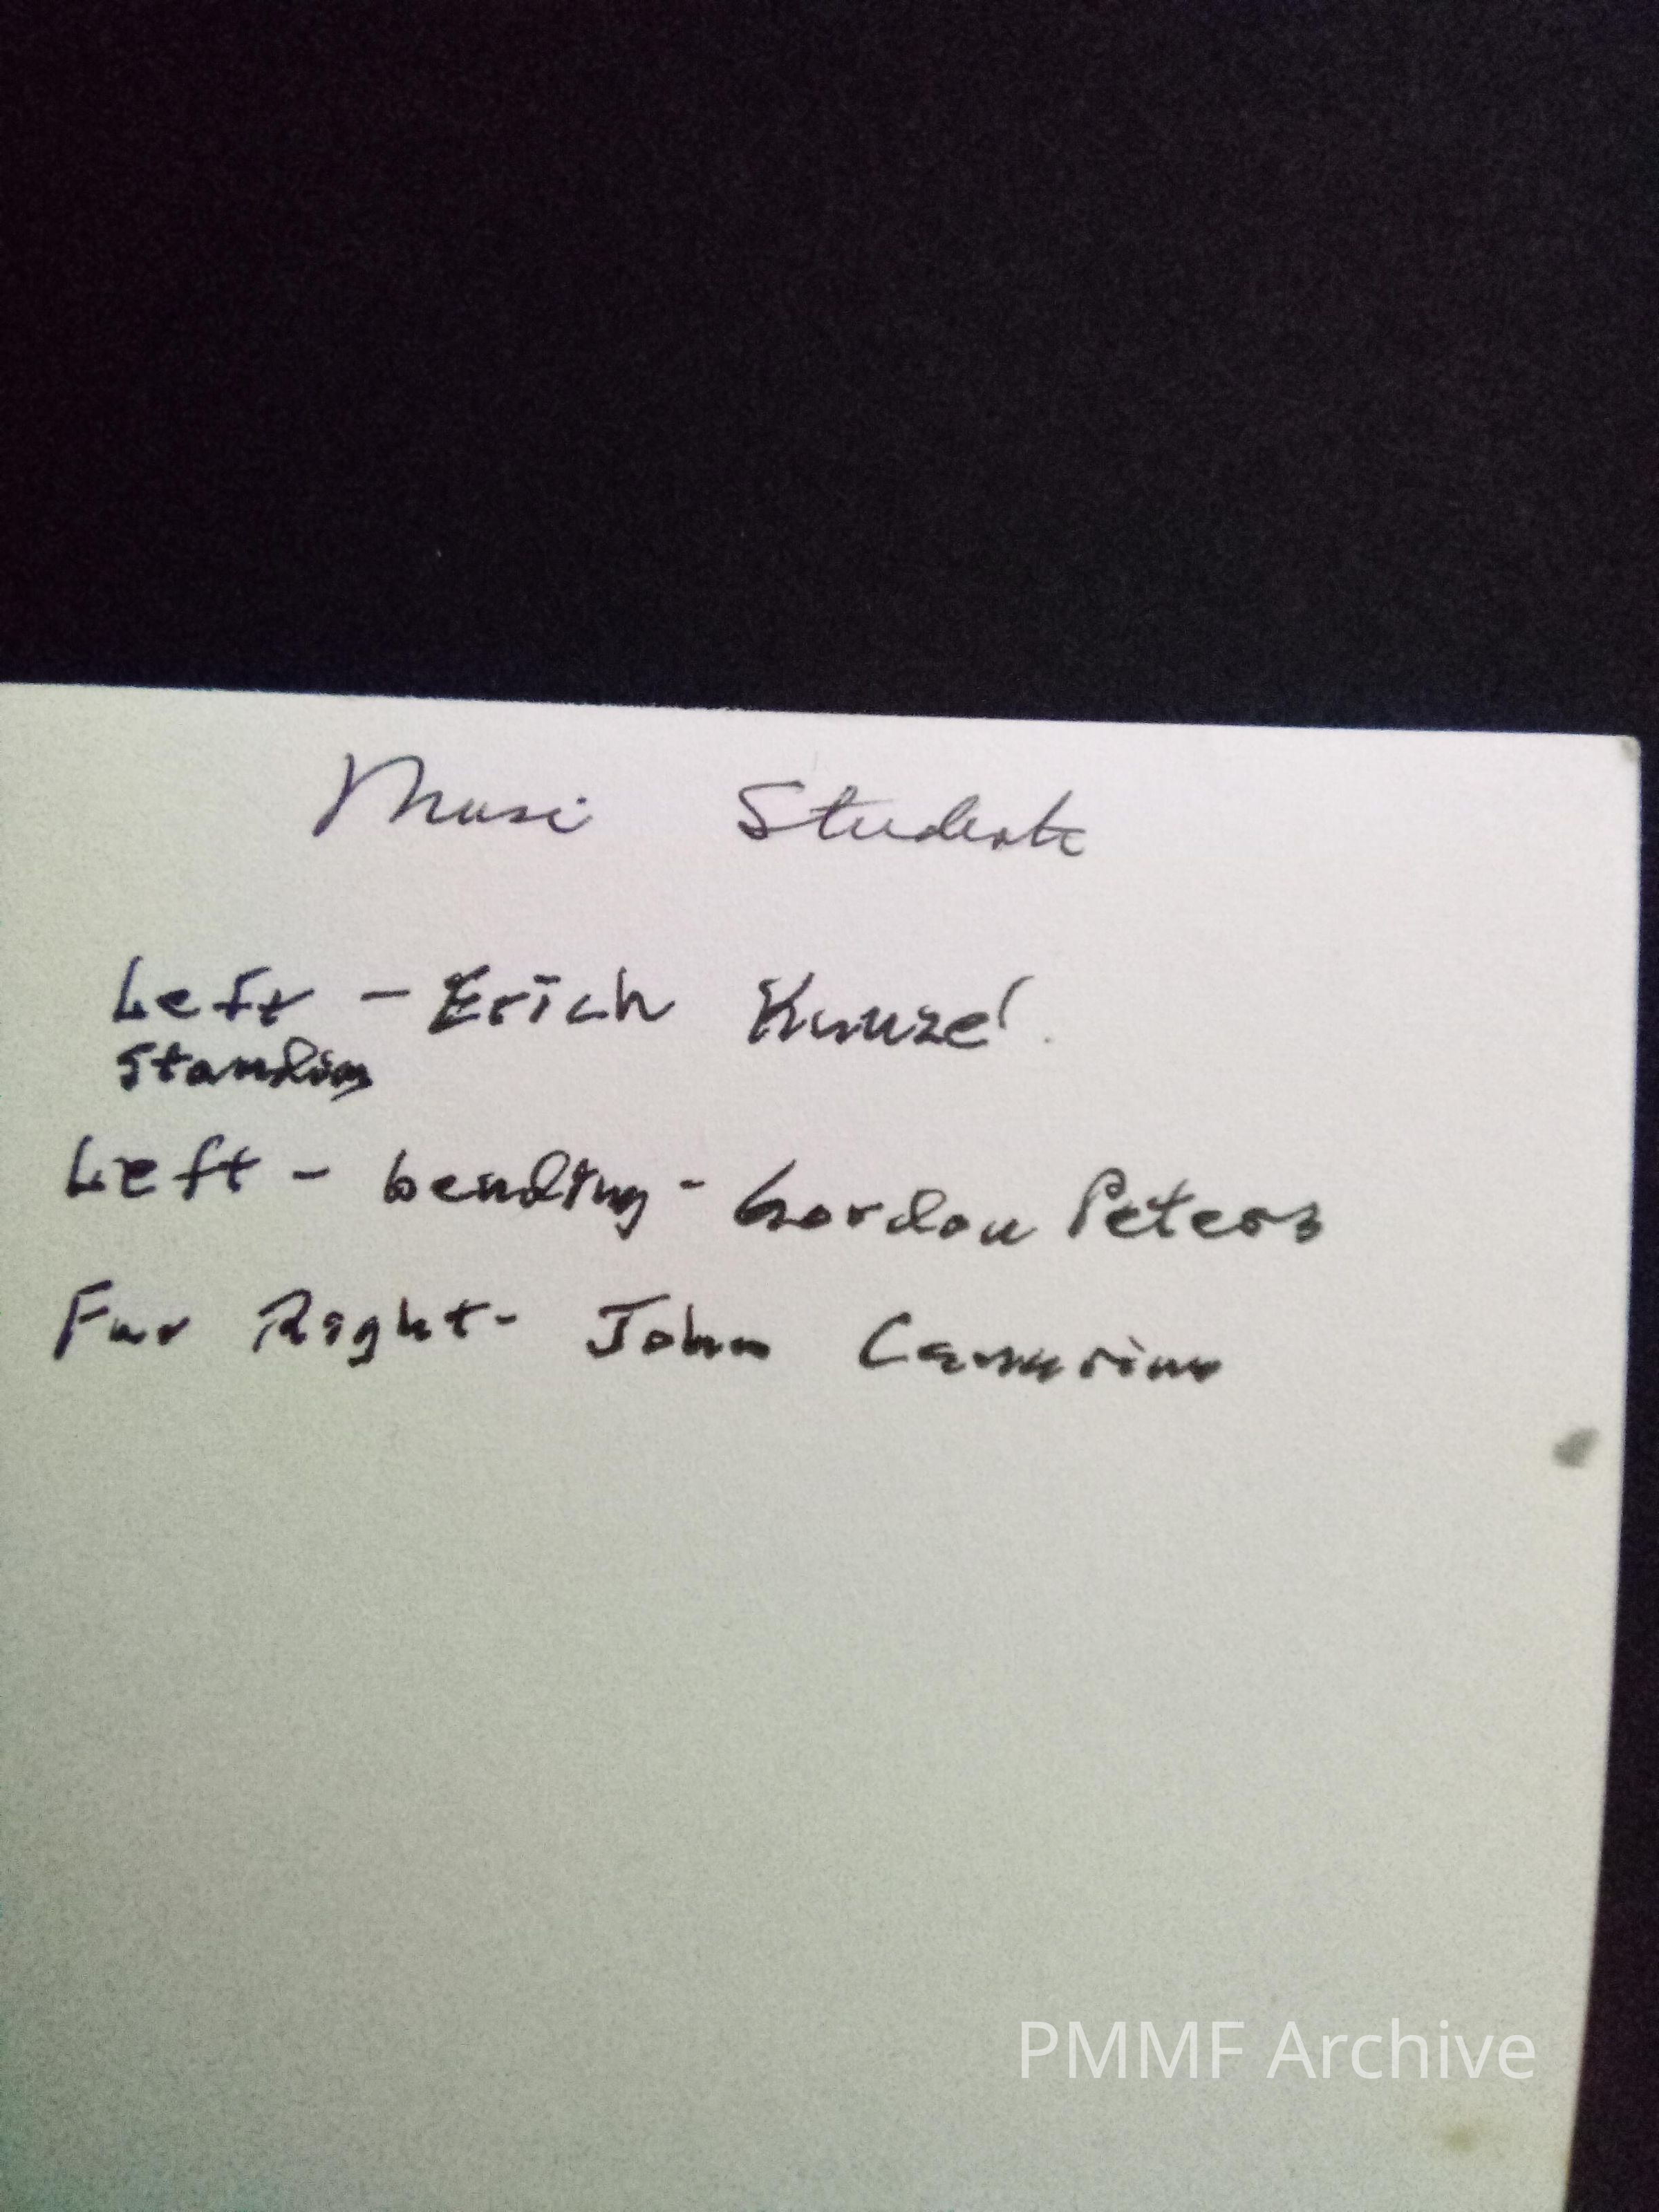 Music Students
Left - Erich Kunzel
Standing
Left - bending - Gordon Peters
Far Right - John Canarina
PMMF Archive